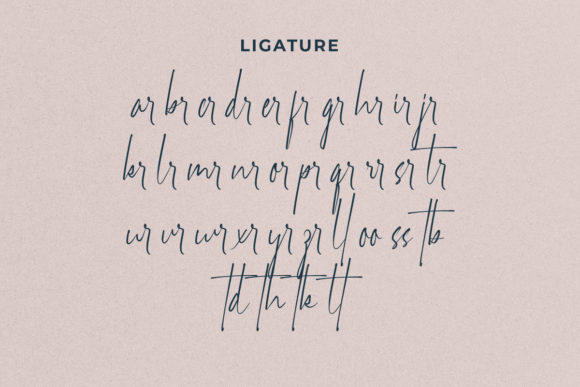 LIGATURE
ar br cr dr er fr gr hr ir jr
kr lr mr nr or pr qr rr sr tr
ur vr wr xr yr zr ll oo ss tb
td th tk tl